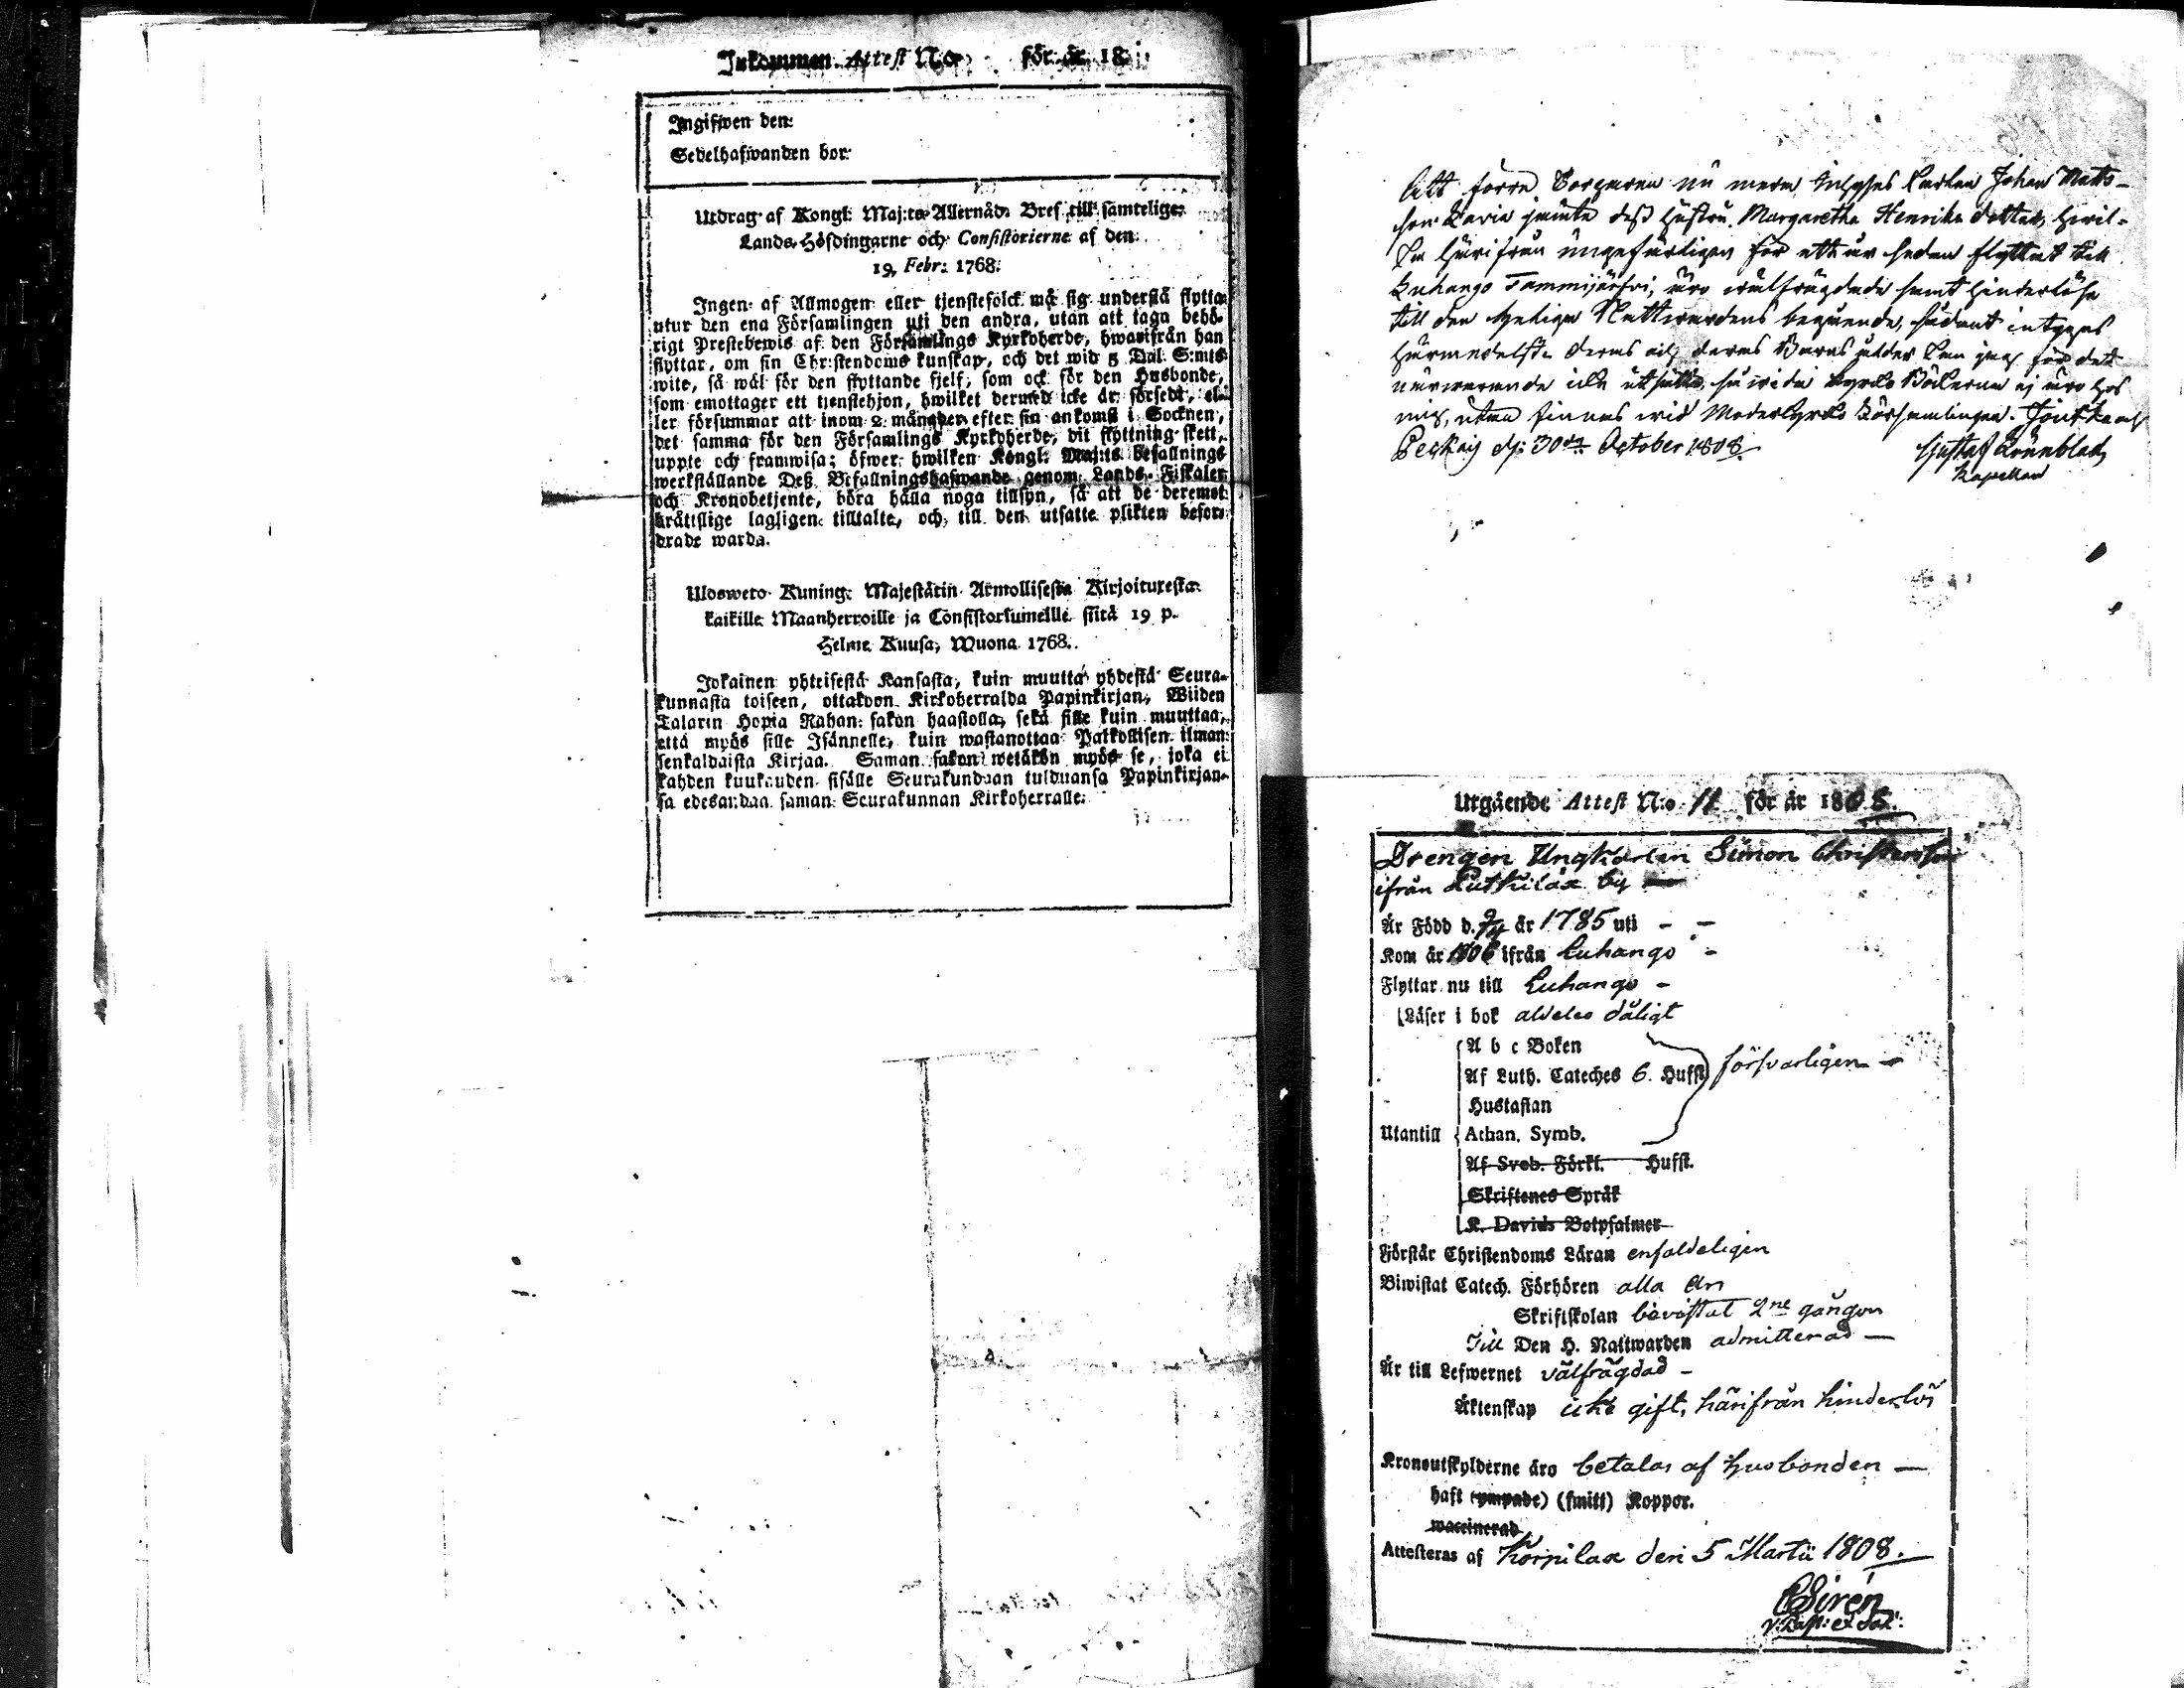 Inkommen Attest N:o för år 18
Ingifwen den:
Sedelhafwanden bor:
Utdrag af Kongl: Maj:ts Allernåd: Bref till samtelige
Lands-Höfdingarne och Consistorierne af den
19 Febr: 1768.
Ingen af Allmogen eller tjenstefolck må sig understå flytta
utur den ena Församlingen uti den andra, utan att taga behö-
rigt Prestebewis af den Församlings Kyrkoherde, hwarifrån han
flyttar, om sin Christendoms kunskap, och det wid 5 Dal. S:mts
wite, så wäl för den flyttande sjelf, som ock för den Husbonde,
som emottager ett tjenstehjon, hwilket dermed icke är försedt, el-
ler försummar att inom 2 månader efter sin ankomst i Socknen,
det samma för den Församlings Kyrkoherde, dit flyttning skett,
uppte och framwisa; öfwer hwilken Kongl: Maj:ts befallnings
werkställande Deß Befallningshafwande genom Lands-Fiskaler
och Kronobetjente, böra hålla noga tillsyn, så att de deremot
bråttslige lagligen tilltalte, och till den utsatte plikten befor-
drade warda.
Ulosweto Kuning: Majestätin Armollisesta Kirjoituxesta
kaikille Maanherroille ja Consistoriumeille siitä 19 p.
Helme Kuusa, Wuona 1768.
Jokainen yhteisestä Kansasta, kuin muutta yhdestä Seura-
kunnasta toiseen, ottakoon Kirkoherralda Papinkirjan, Wiiden
Talarin Hopia Rahan sakon haastolla, sekä sille kuin muuttaa,
että myös sille Isännelle, kuin wastanottaa Palkollisen ilman
senkaldaista Kirjaa. Saman sakon wetäkön myös se, joka ei
kahden kuukauden sisälle Seurakundaan tulduansa Papinkirjan-
sa edesandaa saman Seurakunnan Kirkoherralle.
Att förre Torparen nu mera Inhyses Karlen Johan Matts-
son Kavia jämte dess Hustru Margaretha Henriks dotter, hwil-
ka härifrån ungefärligen för ett år sedan flyttat till
Luhango Tammijärfvi, äro wälfrägdade samt hinderlöse
till den heliga Nattwardens begående, sådant intygas
härmedelst. Deras och deras Barns ålder kan jag för det
närwarande icke utsätta, så wida kyrko Böckerna ej äro hos
mig, utan finnas wid Moderkyrko Församlingen. Joutza och
d: 30de October 1808.
Gustaf Lönnblad
Kapellan
Utgående Attest N:o 11 för år 1808.
Drengen Ungkarlen Simon Christersson
ifrån Putkilax by
Är Född d. 9/4 år 1785 uti - -
Kom år 1806 ifrån Luhango -
Flyttar nu till Luhango -
Läser i bok aldeles dåligt
A b c Boken
Af Luth. Cateches 6. Hufst. försvarligen -
Hustaflan
Utantill Athan. Symb.
Af Sveb. Förkl. Hufst.
Skriftenes Språk
K. Davids Botpsalmer
Förstår Christendoms Läran enfaldeligen
Biwistat Catech. Förhören alla år
Skriftskolan bevistat 2ne gånger
Till Den H. Nattwarden admitterad -
Är till Lefwernet välfrägdad -
Äktenskap icke gift, härifrån hinderlös
Kronoutskylderne äro betalas af Husbonden -
haft (ympade) (smitt) Koppor.
waccinerad
Attesteras af Korpilax den 5 Martii 1808.
Sirén